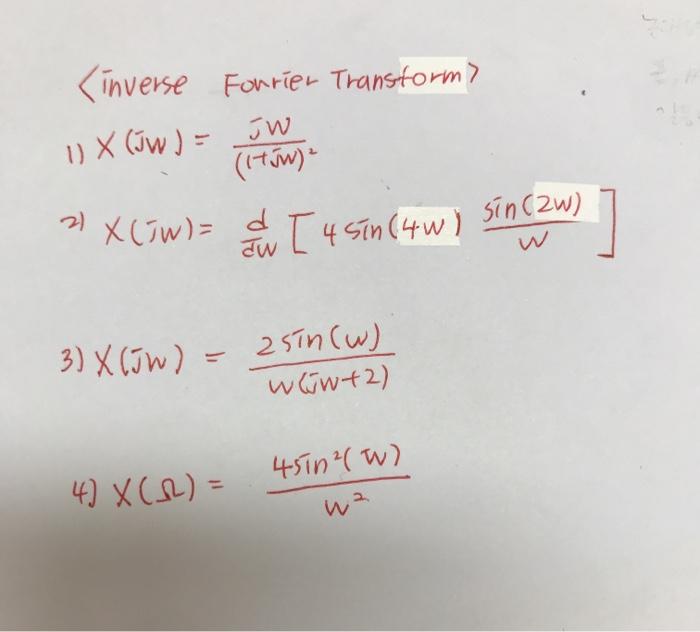 <inverse Fourier Transform>
1) X(jw) = jw / (1+jw)²
2) X(jw) = d/dw [4 sin(4w) sin(2w) / w]
3) X(jw) = 2 sin(w) / w(jw+2)
4) X(Ω) = 4sin²(w) / w²